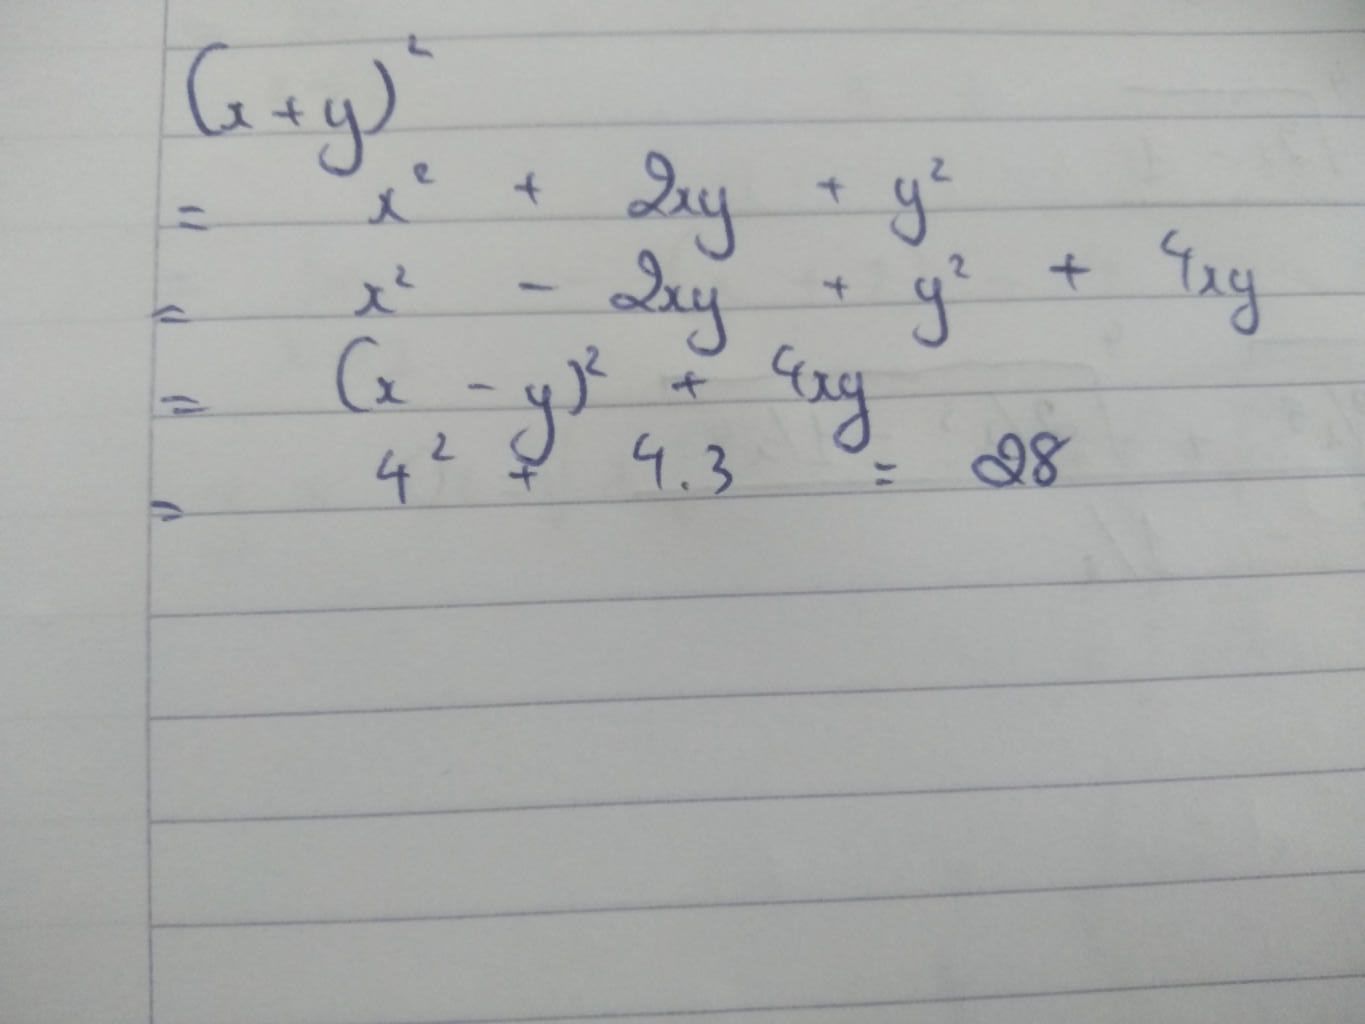 (x + y)²
= x² + 2xy + y²
= x² - 2xy + y² + 4xy
= (x - y)² + 4xy
= 4² + 4.3 = 28